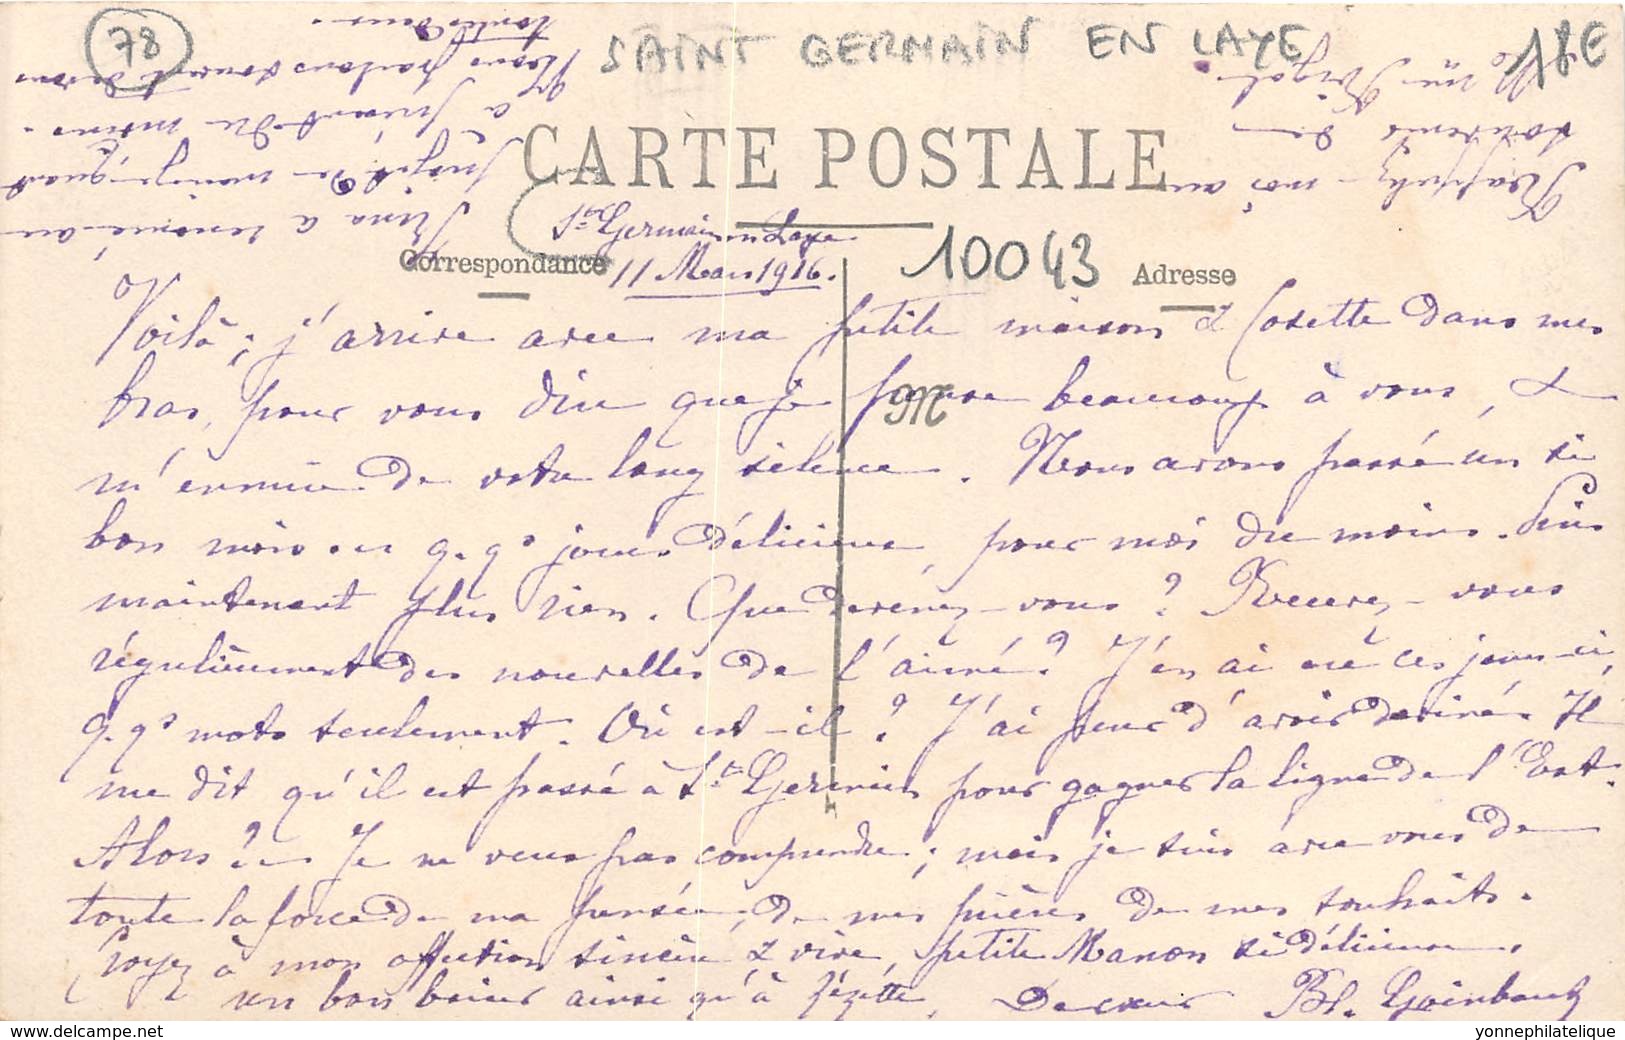 78
SAINT GERMAIN EN LAYE
18E
CARTE POSTALE
St Germain en Laye
11 Mars 1916.
10043
Correspondance
Adresse
M
Voilà ; j'arrive avec ma petite maison & Cosette dans mes
bras, pour vous dire que je pense beaucoup à vous, &
m'ennuie de votre long silence. Nous avons passé un si
bon mois en q.qs jours délicieux, pour moi du moins. Puis
maintenant plus rien. Que devenez-vous ? Recevez-vous
régulièrement des nouvelles de l'aimé ? J'en ai eu ces jours-ci,
q.qs mots seulement. Où est-il ? J'ai peur d'avoir deviné. Il
me dit qu'il est passé à St Germain pour gagner la ligne de l'Est.
Alors ? Je ne veux pas comprendre ; mais je suis avec vous de
toute la force de ma pensée, de mes prières de mes souhaits.
Croyez à mon affection sincère & vive, petite Manon si délicieuse.
un bon baiser ainsi qu'à Zézette. De cœur Bl.
a renoncé au
sujet de manger quant
à présent du moins.
Nous parlons souvent de vous
toutes deux.
Rappelez-moi au
souvenir de
yonnephilatelique